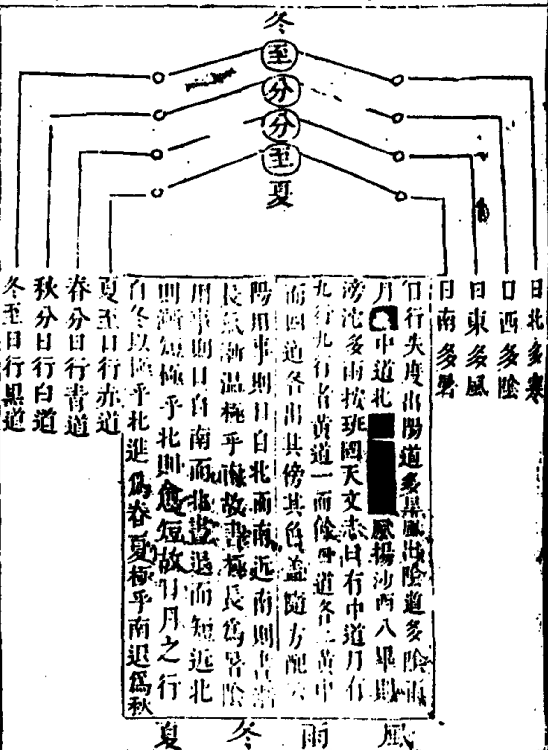 冬
至
分
分
至
夏
日北多寒
日西多陰
日東多風
日南多暑
日行失度出陽道多風出陰道多陰雨
月中道北風揚沙西入畢則
滂沱多雨按班固天文志曰有中道月有
九行九行者黄道一而餘四道各二黄中
而四道各出其傍其色盖隨方配
陽用事則日自北而南近南則晝漸
長氣漸温極乎南故晝極長為暑陰
用事則日自南而北晝退而短近北
則漸短極乎北則愈短故日月之行
自冬以極乎北進為春夏極乎南退為秋
夏至日行赤道
春分日行青道
秋分日行白道
冬至日行黑道
風
雨
冬
夏